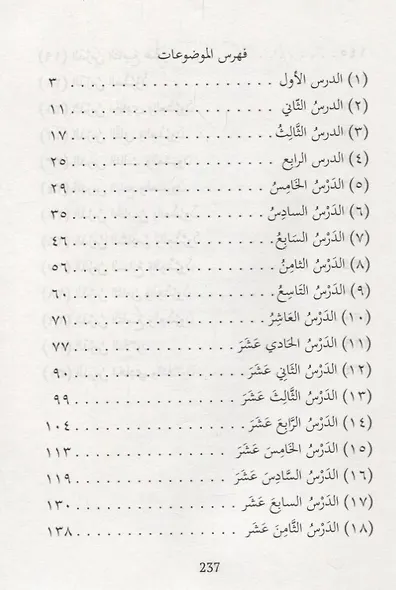 فهرس الموضوعات
(١) الدرس الأول . . . . . . . . . . . . . . . . . . . . ٣
(٢) الدرسُ الثَّاني . . . . . . . . . . . . . . . . . . . ١١
(٣) الدرسُ الثَّالِثُ . . . . . . . . . . . . . . . . . . . ١٧
(٤) الدرس الرابع . . . . . . . . . . . . . . . . . . . ٢٥
(٥) الدَّرْسُ الخَامِسُ . . . . . . . . . . . . . . . . . . ٢٩
(٦) الدَّرْسُ السادِسُ . . . . . . . . . . . . . . . . . . ٣٥
(٧) الدَّرْسُ السَابِعُ . . . . . . . . . . . . . . . . . . . ٤٦
(٨) الدَّرْسُ الثامِنُ . . . . . . . . . . . . . . . . . . . ٥٦
(٩) الدَّرْسُ التَاسِعُ . . . . . . . . . . . . . . . . . . . ٦٠
(١٠) الدَّرْسُ العَاشِرُ . . . . . . . . . . . . . . . . . . ٧١
(١١) الدَّرْسُ الحَادي عَشَرَ . . . . . . . . . . . . . . . ٧٧
(١٢) الدَّرْسُ الثَانِي عَشَرَ . . . . . . . . . . . . . . . . ٩٠
(١٣) الدَّرْسُ الثَّالِثَ عَشَرَ . . . . . . . . . . . . . . . . ٩٩
(١٤) الدَّرْسُ الرَّابِعَ عَشَرَ . . . . . . . . . . . . . . . ١٠٤
(١٥) الدَّرْسُ الخَامِسَ عَشَرَ . . . . . . . . . . . . . . ١١٣
(١٦) الدَّرْسُ السَّادِسَ عَشَرَ . . . . . . . . . . . . . . ١١٩
(١٧) الدَّرْسُ السابِعَ عَشَرَ . . . . . . . . . . . . . . . ١٣٠
(١٨) الدَّرْسُ الثَّامِنَ عَشَرَ . . . . . . . . . . . . . . . ١٣٨
237